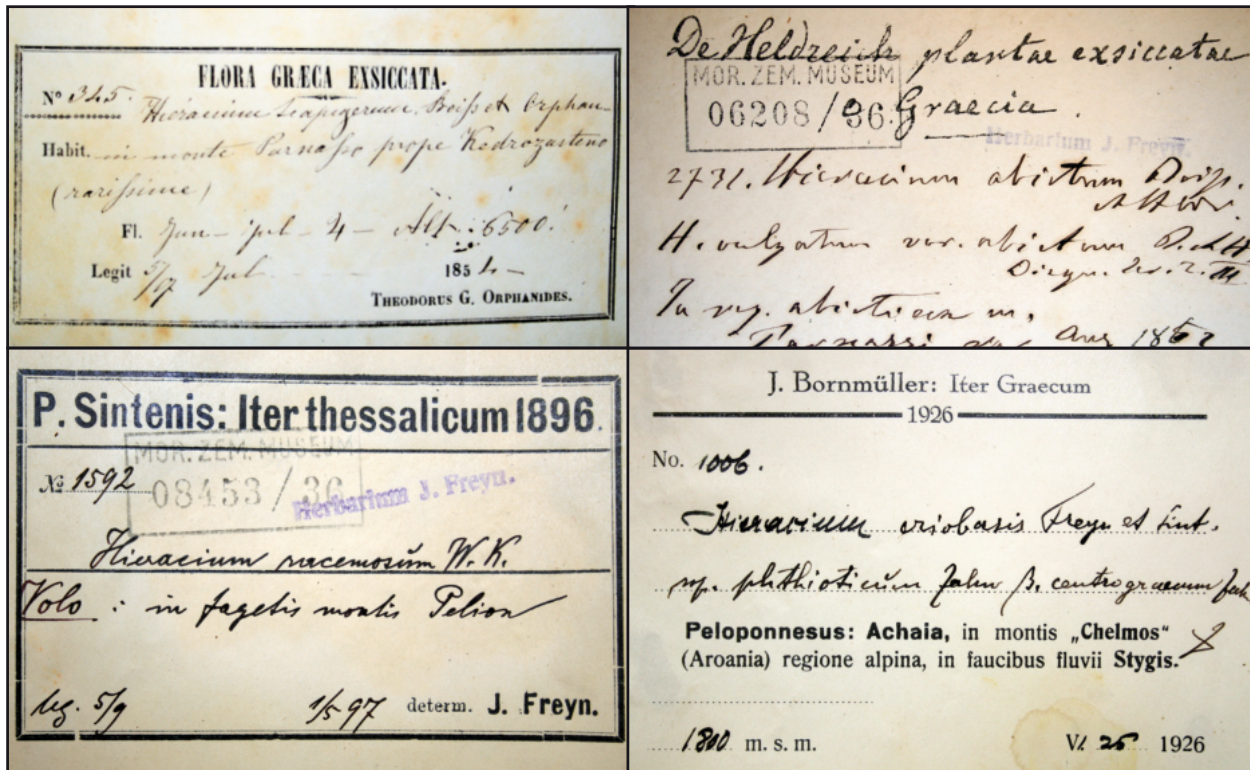 FLORA GRÆCA EXSICCATA.
Nº 345. Hieracium scapigerum. Boiss et Orphan
Habit. in monte Parnasso prope
(rarissime)
Fl. Jun - jul - 4 - Alt. 6500'
Legit 5/17 Jul 1854 -
THEODORUS G. ORPHANIDES.
De Heldreich plantae exsiccatae
MOR. ZEM. MUSEUM
06208 / 36
e Graecia.
Herbarium J. Freyn.
2731. Hieracium abietinum Boiss.
H. vulgatum var. abietinum
Diagn.
In reg. abietina m.
Parnassi Aug 1852
P. Sintenis: Iter thessalicum 1896.
MOR. ZEM. MUSEUM
№ 1592
08453 / 36
Herbarium J. Freyn.
Hieracium racemosum W. K.
Volo : in fagetis montis Pelion
leg. 5/9 1/5 97 determ. J. Freyn.
J. Bornmüller: Iter Graecum
1926
No. 1006.
Hieracium eriobasis Freyn et Sint.
sp. phthioticum Zahn β. centrograecum Zah
Peloponnesus: Achaia, in montis „Chelmos“
(Aroania) regione alpina, in faucibus fluvii Stygis.
1800 m. s. m. VI. 25 1926